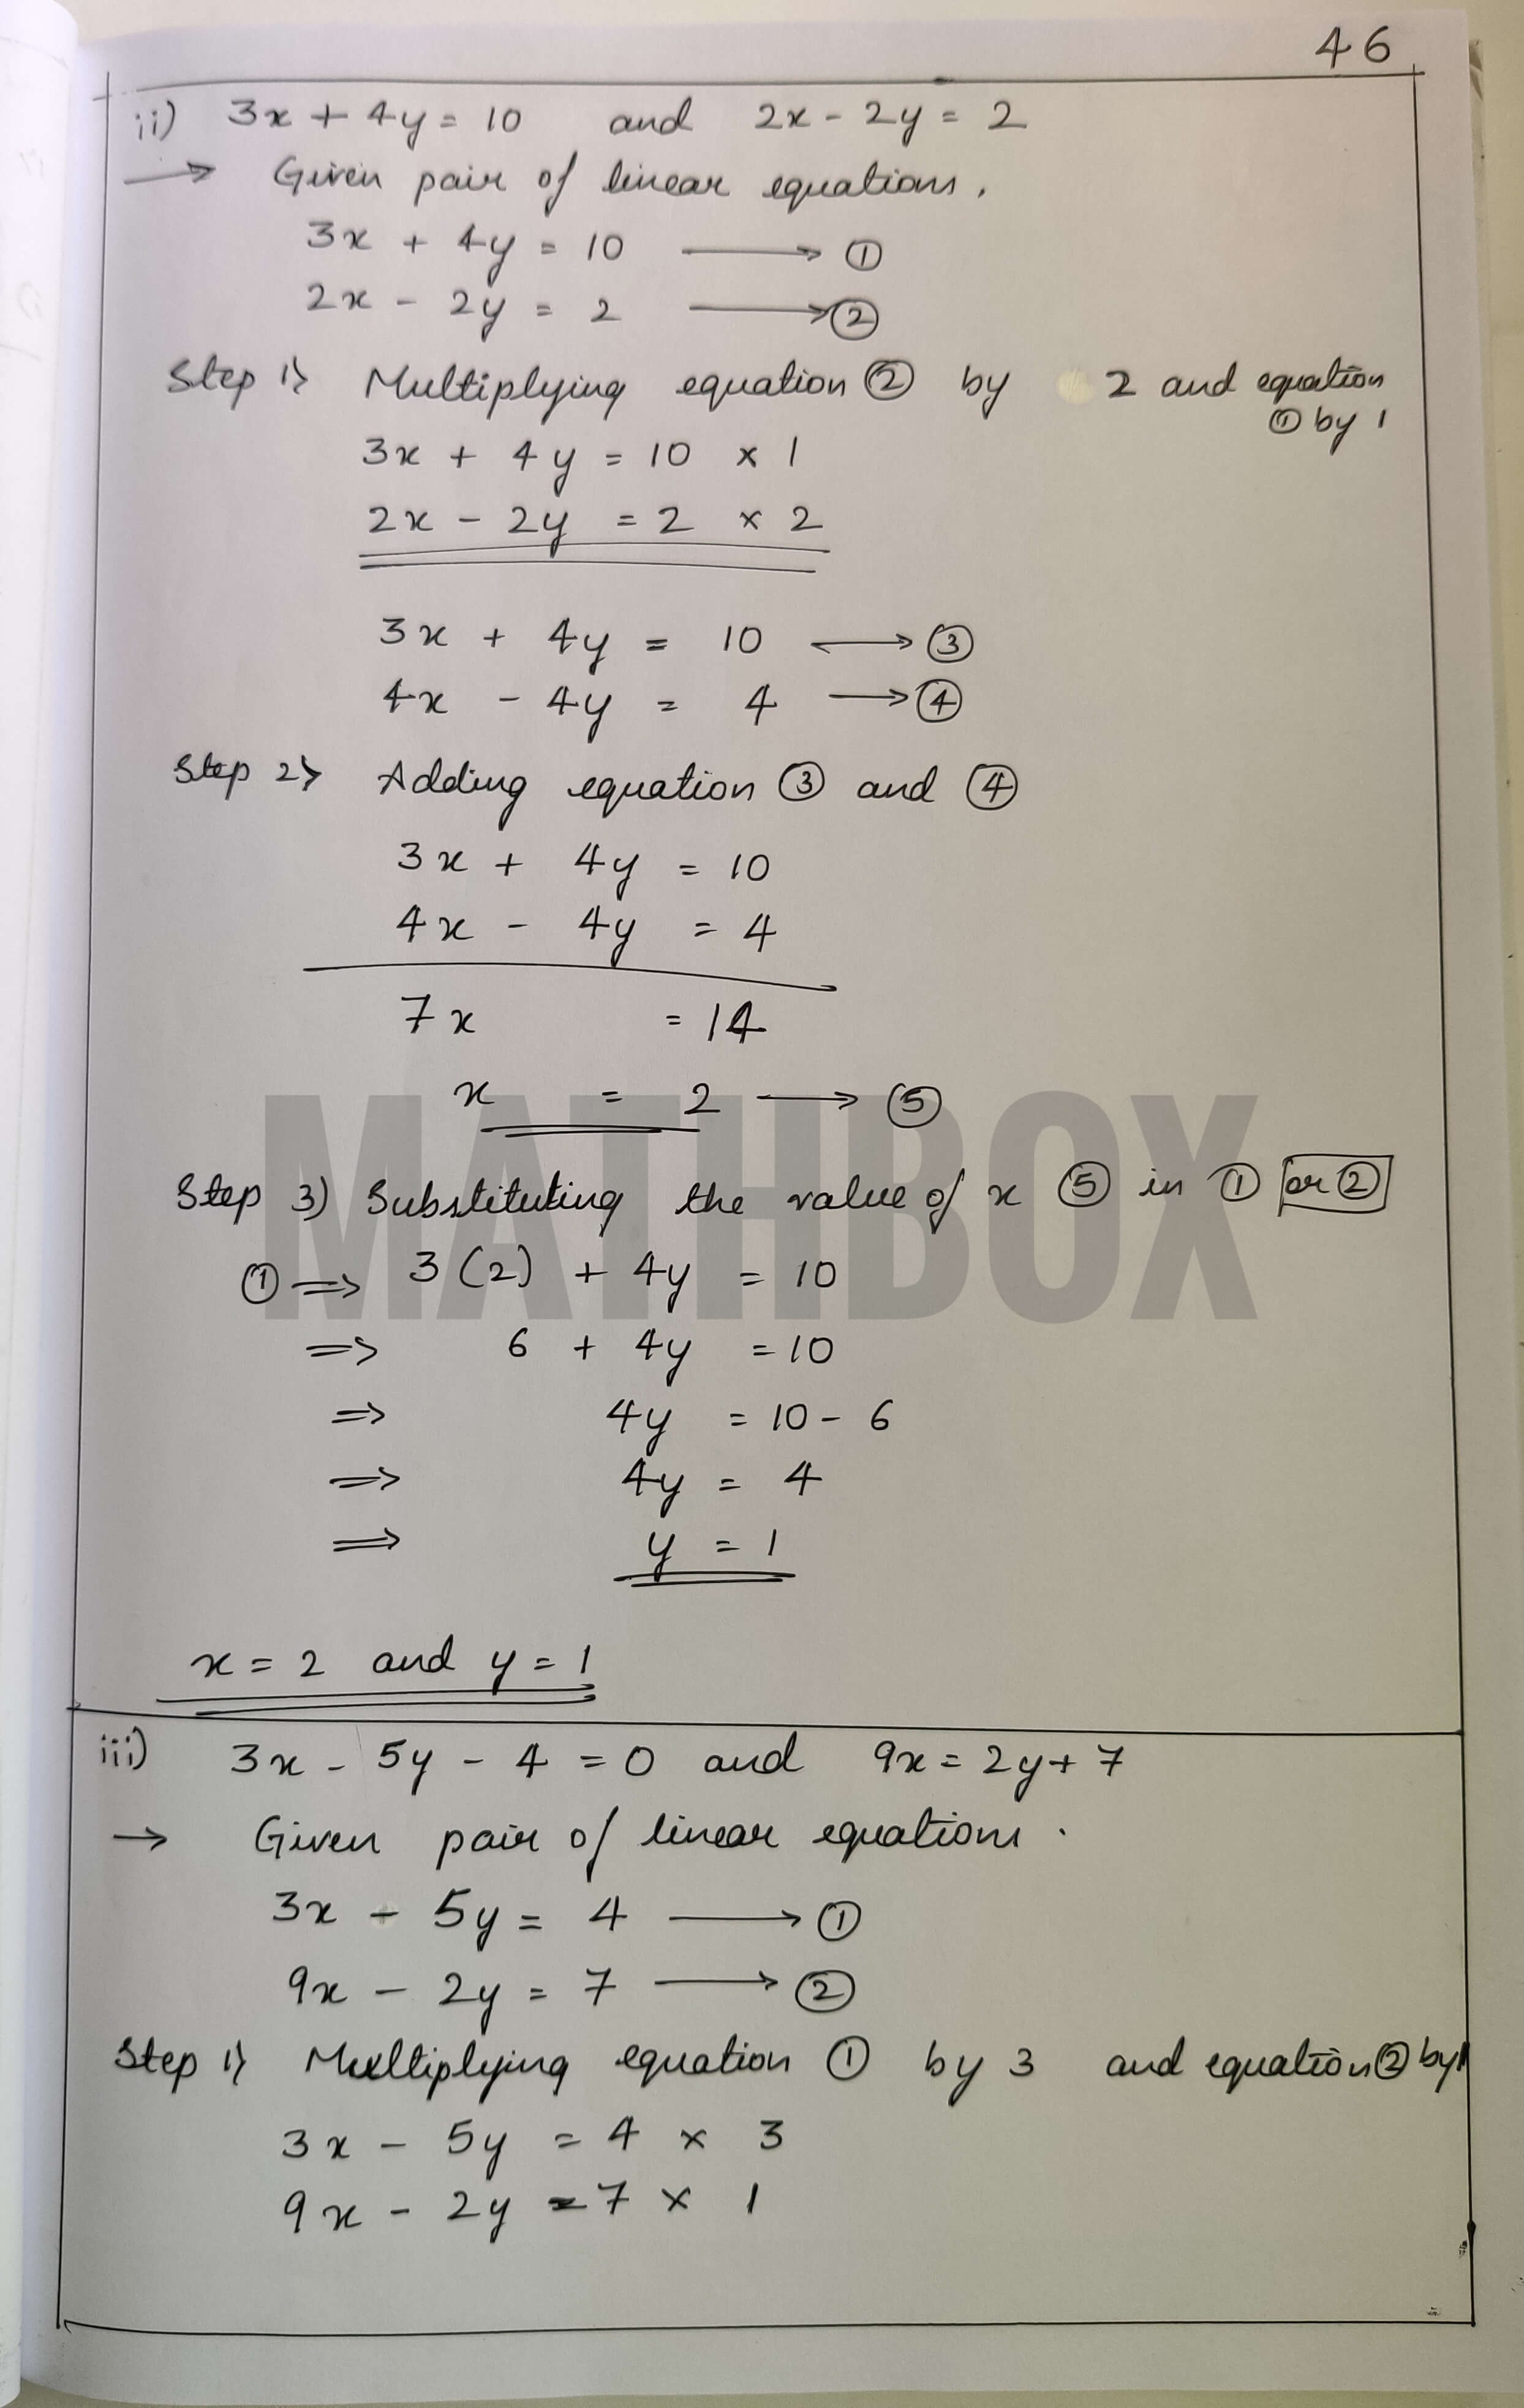 46
ii) 3x + 4y = 10 and 2x - 2y = 2
→ Given pair of linear equations,
3x + 4y = 10 ⟶ ①
2x - 2y = 2 ⟶ ②
Step 1) Multiplying equation ② by 2 and equation
① by 1
3x + 4y = 10 × 1
2x - 2y = 2 × 2
3x + 4y = 10 ⟶ ③
4x - 4y = 4 ⟶ ④
Step 2) Adding equation ③ and ④
3x + 4y = 10
4x - 4y = 4
7x = 14
x = 2 ⟶ ⑤
MATHBOX
Step 3) Substituting the value of x ⑤ in ① or ②
① ⇒ 3(2) + 4y = 10
⇒ 6 + 4y = 10
⇒ 4y = 10 - 6
⇒ 4y = 4
⇒ y = 1
x = 2 and y = 1
iii) 3x - 5y - 4 = 0 and 9x = 2y + 7
→ Given pair of linear equations.
3x - 5y = 4 ⟶ ①
9x - 2y = 7 ⟶ ②
Step 1) Multiplying equation ① by 3 and equation ② by 1
3x - 5y = 4 × 3
9x - 2y = 7 × 1